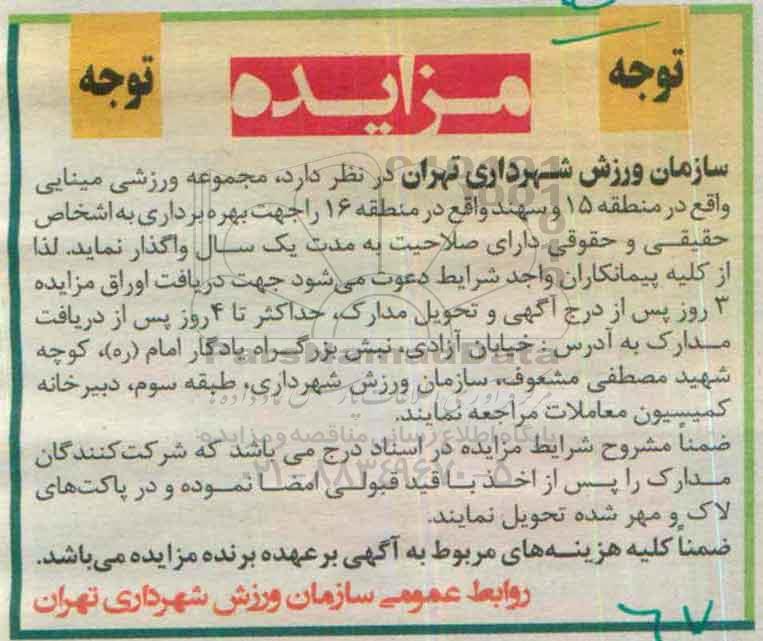 توجه
مزایده
توجه
سازمان ورزش شهرداری تهران در نظر دارد، مجموعه ورزشی مینایی
واقع در منطقه ۱۵ و سهند واقع در منطقه ۱۶ را جهت بهره برداری به اشخاص
حقیقی و حقوقی دارای صلاحیت به مدت یک سال واگذار نماید. لذا
از کلیه پیمانکاران واجد شرایط دعوت می‌شود جهت دریافت اوراق مزایده
۳ روز پس از درج آگهی و تحویل مدارک، حداکثر تا ۴ روز پس از دریافت
مدارک به آدرس : خیابان آزادی، نبش بزرگراه یادگار امام (ره)، کوچه
شهید مصطفی مشعوف، سازمان ورزش شهرداری، طبقه سوم، دبیرخانه
کمیسیون معاملات مراجعه نمایند.
ضمناً مشروح شرایط مزایده در اسناد درج می باشد که شرکت‌کنندگان
مدارک را پس از اخذ با قید قبولی امضا نموده و در پاکت‌های
لاک و مهر شده تحویل نمایند.
ضمناً کلیه هزینه‌های مربوط به آگهی بر عهده برنده مزایده می‌باشد.
روابط عمومی سازمان ورزش شهرداری تهران
ParsNamadData
پایگاه اطلاع رسانی مناقصه و مزایده
۰۲۱-۸۸۳۴۹۶۷۰-۵
۶۷